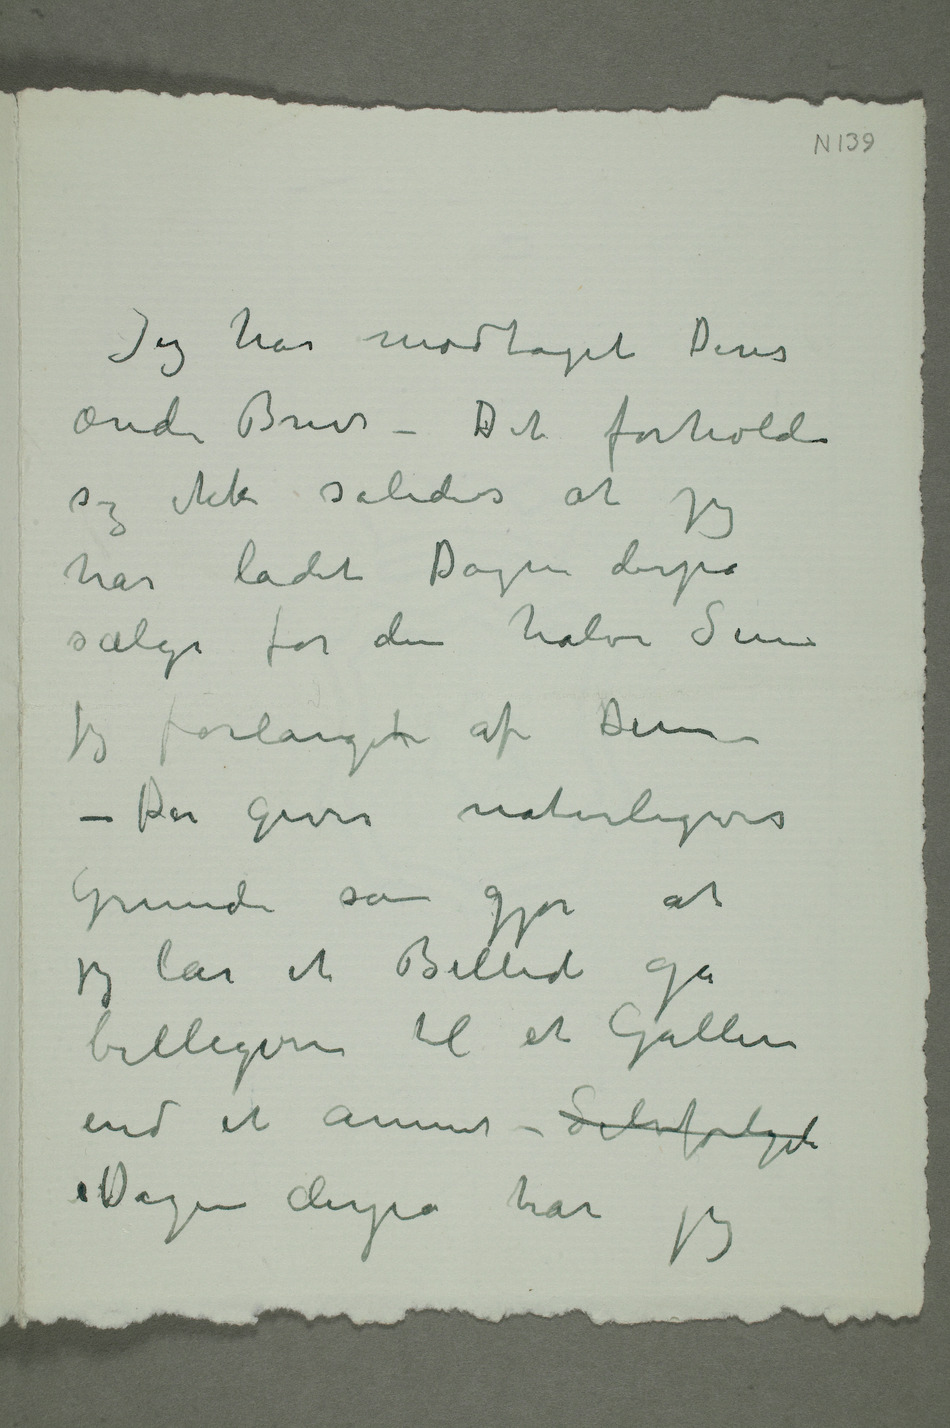 N 139
Jeg har modtaget Deres
ærede Brev – Det forholder
sig ikke således at jeg
har ladet Dagen derpå
sælge for den halve Sum
jeg forlangte af Dem –
– Der gives naturligvis
Grunde som gjør at
jeg lar et Billede gå
billigere til et Galleri
end et annet – Selvfølgeli
Dagen derpå har jeg